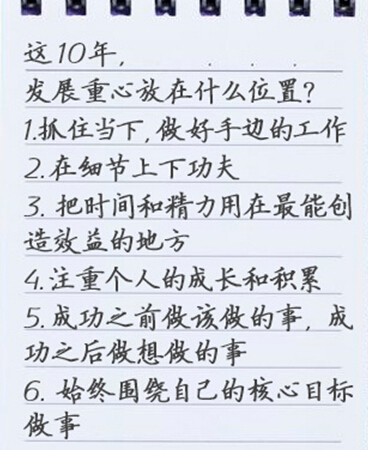 这10年, . . .
发展重心放在什么位置?
1.抓住当下,做好手边的工作
2.在细节上下功夫
3. 把时间和精力用在最能创
造效益的地方
4.注重个人的成长和积累
5.成功之前做该做的事, 成
功之后做想做的事
6. 始终围绕自己的核心目标
做事